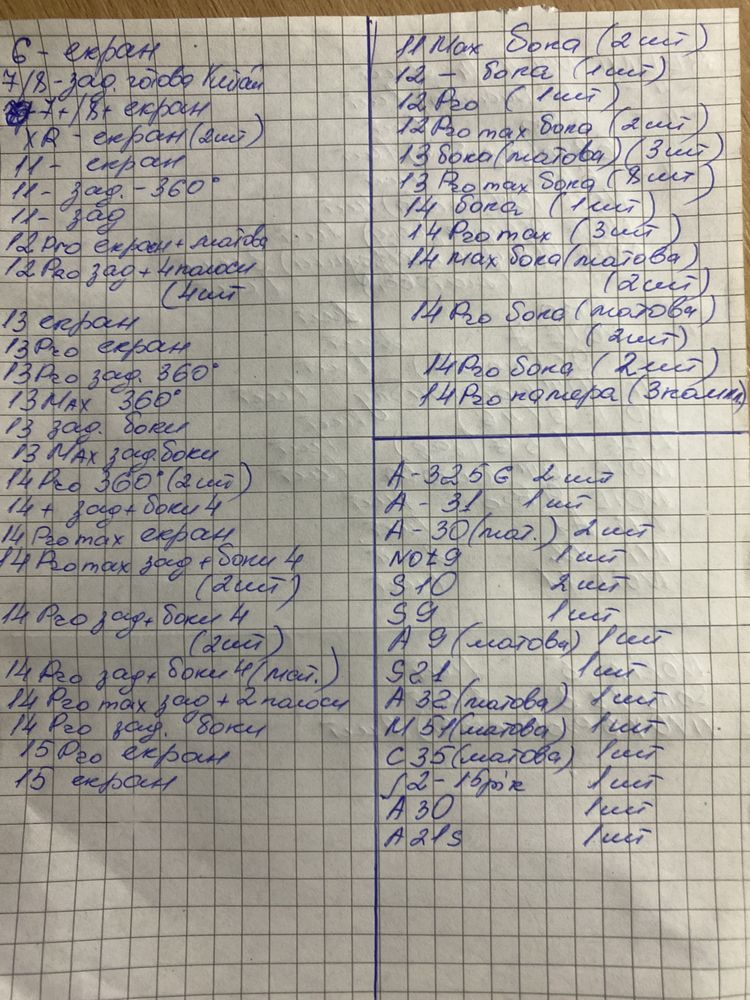 6 - екран
7/8 - зад. готова Китай
7+/8+ екран
XR - екран (2шт)
11 - екран
11 - зад. - 360°
11 - зад
12 Pro екран + матова
12 Pro зад + 4 полоси
(4шт
13 екран
13 Pro екран
13 Pro зад. 360°
13 Max 360°
13 зад. боки
13 Max зад. боки
14 Pro 360° (2шт)
14 + зад + боки 4
14 Pro max екран
14 Pro max зад + боки 4
(2шт)
14 Pro зад + боки 4
(2шт)
14 Pro зад + боки 4 (мат.)
14 Pro max зад + 2 полоси
14 Pro зад. боки
15 Pro екран
15 екран
11 Max бока (2шт)
12 - бока (1шт)
12 Pro (1шт)
12 Pro max бока (2шт)
13 бока (матова) (3шт)
13 Pro max бока (8шт)
14 бока (1шт)
14 Pro max (3шт)
14 max бока (матова)
(2шт)
14 Pro бока (матова)
(2шт)
14 Pro бока (2шт)
14 Pro камера (3 компл)
A - 325G 2шт
A - 31 1шт
A - 30 (мат.) 2шт
Not9 1шт
S10 2шт
S9 1шт
A9 (матова) 1шт
S21 1шт
A32 (матова) 1шт
M51 (матова) 1шт
C35 (матова) 1шт
J2 - 15рік 1шт
A30 1шт
A21s 1шт